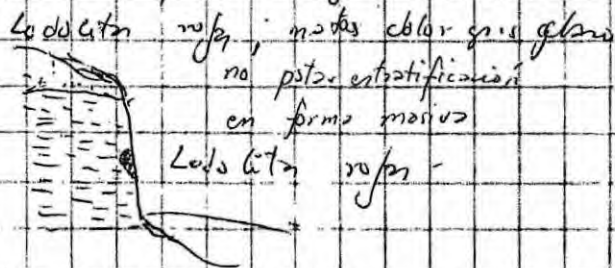 Lodolita roja, motas color gris
no estratificación
en forma masiva
Lodolita roja -